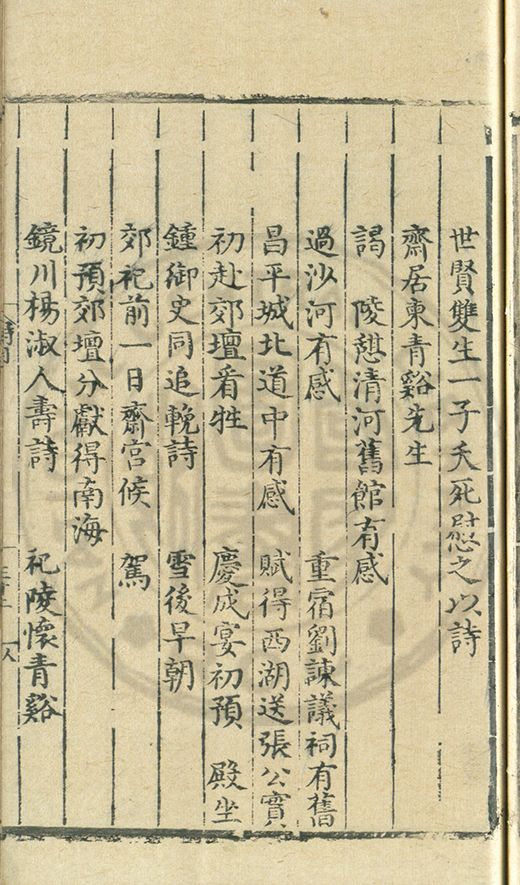 世賢雙生一子夭死慰之以詩
齋居柬青谿先生
謁　陵憇清河舊館有感
過沙河有感　重宿劉諫議祠有舊
昌平城北道中有感　賦得西湖送張公實
初赴郊壇看牲　慶成宴初預　殿坐
鍾御史同追輓詩　雪後早朝
郊祀前一日齋宮候　駕
初預郊壇分獻得南海
鏡川楊淑人壽詩　祀陵懷青谿